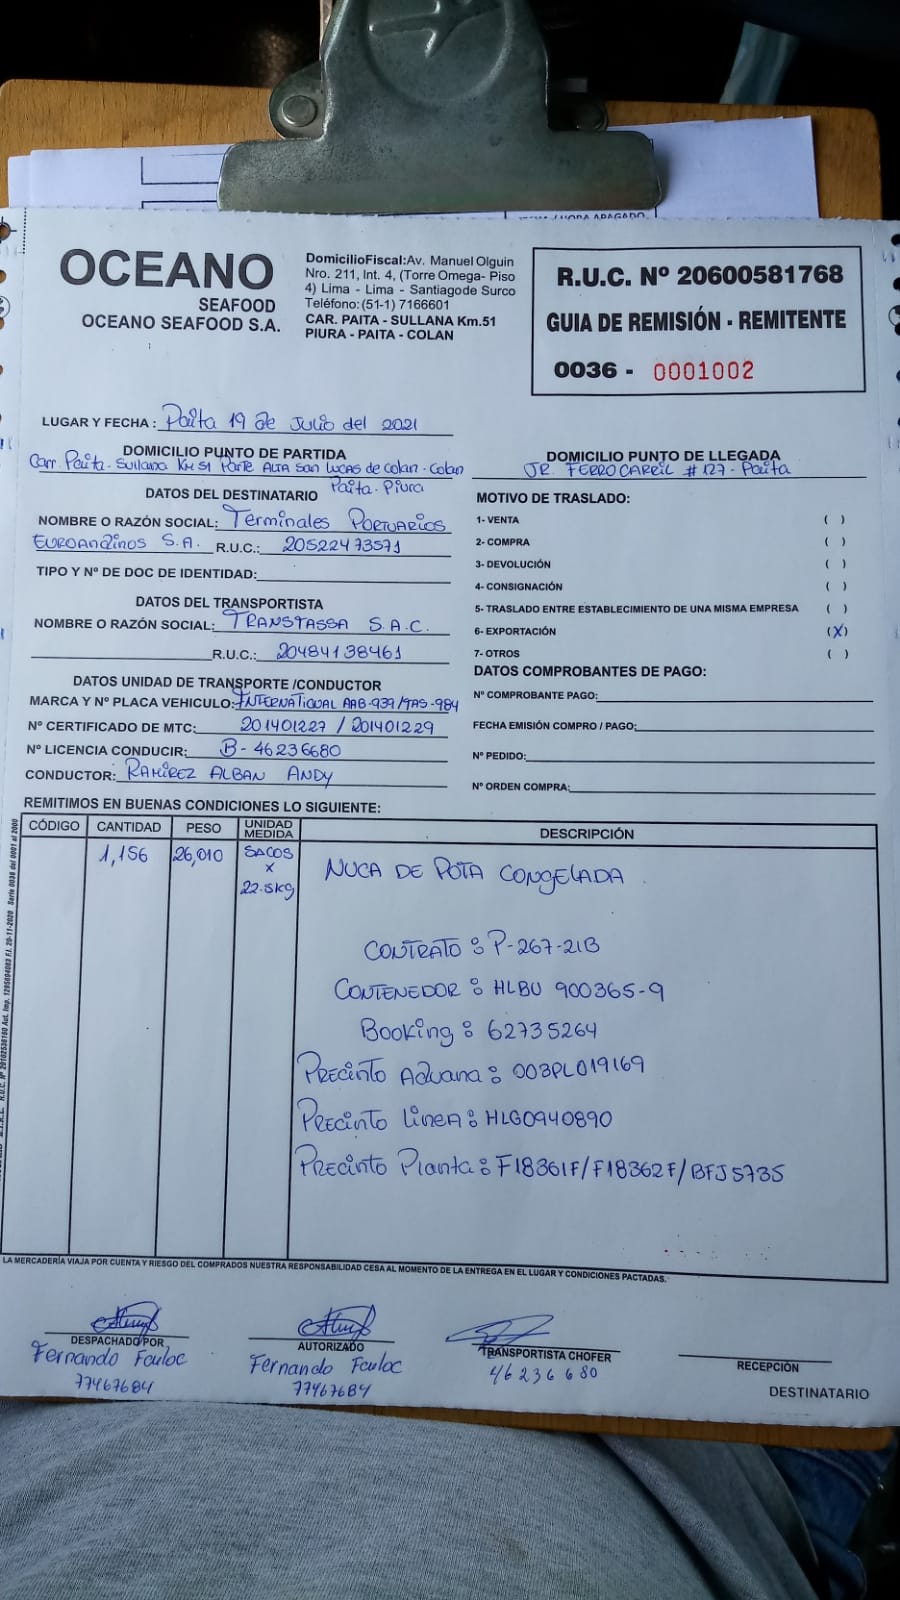 OCEANO
SEAFOOD
OCEANO SEAFOOD S.A.
DomicilioFiscal:Av. Manuel Olguin
Nro. 211, Int. 4, (Torre Omega- Piso
4) Lima - Lima - Santiagode Surco
Teléfono:(51-1) 7166601
CAR. PAITA - SULLANA Km.51
PIURA - PAITA - COLAN
R.U.C. Nº 20600581768
GUIA DE REMISIÓN - REMITENTE
0036 - 0001002
LUGAR Y FECHA : Paita 19 de Julio del 2021
DOMICILIO PUNTO DE PARTIDA
Carr. Paita-Sullana Km 51 Parte Alta San Lucas de Colan-Colan
Paita-Piura
DOMICILIO PUNTO DE LLEGADA
JR. FERROCARRIL #127-Paita
DATOS DEL DESTINATARIO
NOMBRE O RAZÓN SOCIAL: Terminales Portuarios
Euroandinos S.A. R.U.C.: 20522473571
TIPO Y Nº DE DOC DE IDENTIDAD:
DATOS DEL TRANSPORTISTA
NOMBRE O RAZÓN SOCIAL: TRANSTASSA S.A.C.
R.U.C.: 20484138461
DATOS UNIDAD DE TRANSPORTE /CONDUCTOR
MARCA Y Nº PLACA VEHICULO: INTERNATIONAL AAB-939/TAS-984
Nº CERTIFICADO DE MTC: 201401227 / 201401229
Nº LICENCIA CONDUCIR: B-46236680
CONDUCTOR: RAMIREZ ALBAN ANDY
MOTIVO DE TRASLADO:
1- VENTA ( )
2- COMPRA ( )
3- DEVOLUCIÓN ( )
4- CONSIGNACIÓN ( )
5- TRASLADO ENTRE ESTABLECIMIENTO DE UNA MISMA EMPRESA ( )
6- EXPORTACIÓN (X)
7- OTROS ( )
DATOS COMPROBANTES DE PAGO:
Nº COMPROBANTE PAGO:
FECHA EMISIÓN COMPRO / PAGO:
Nº PEDIDO:
Nº ORDEN COMPRA:
REMITIMOS EN BUENAS CONDICIONES LO SIGUIENTE:
CÓDIGO CANTIDAD PESO UNIDAD MEDIDA DESCRIPCIÓN
1,156 26,010 SACOS x 22.5kg NUCA DE POTA CONGELADA.
CONTRATO: P-267-21B
CONTENEDOR: HLBU 900365-9
Booking: 62735264
Precinto Aduana: 003PL019169
Precinto Linea: HLG0940890
Precinto Planta: F18361F/F18362F/BFJ5735
LA MERCADERÍA VIAJA POR CUENTA Y RIESGO DEL COMPRADOS NUESTRA RESPONSABILIDAD CESA AL MOMENTO DE LA ENTREGA EN EL LUGAR Y CONDICIONES PACTADAS.
DESPACHADO POR
Fernando
77467684
AUTORIZADO
Fernando
77467684
TRANSPORTISTA CHOFER
46236680
RECEPCIÓN
DESTINATARIO